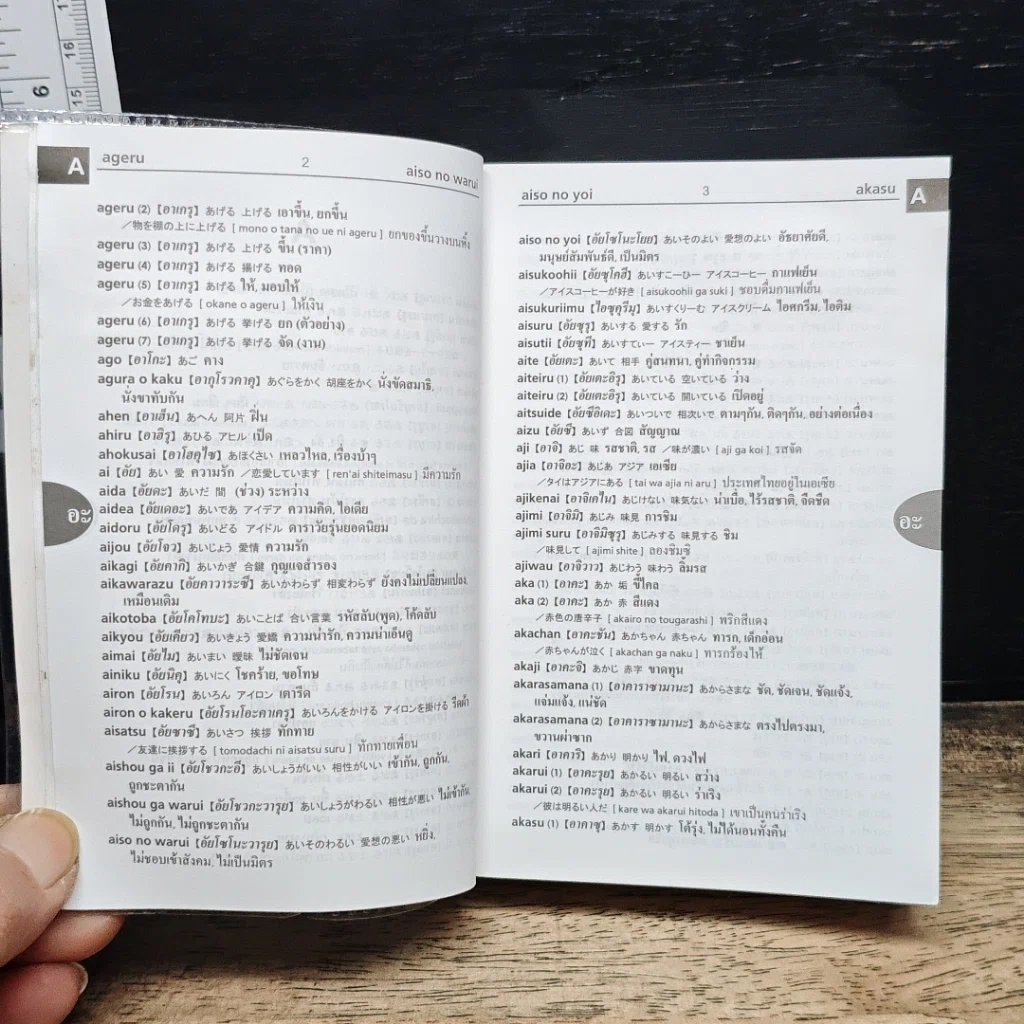 6
16
15
A
ageru 2 aiso no warui
ageru (2) [อาเกรุ] あげる 上げる เอาขึ้น, ยกขึ้น
／物を棚の上に上げる [ mono o tana no ue ni ageru ] ยกของขึ้นวางบนหิ้ง
ageru (3) [อาเกรุ] あげる 上げる ขึ้น (ราคา)
ageru (4) [อาเกรุ] あげる 揚げる ทอด
ageru (5) [อาเกรุ] あげる ให้, มอบให้
／お金をあげる [ okane o ageru ] ให้เงิน
ageru (6) [อาเกรุ] あげる 挙げる ยก (ตัวอย่าง)
ageru (7) [อาเกรุ] あげる 挙げる จัด (งาน)
ago [อาโกะ] あご คาง
agura o kaku [อากุโรวคาคุ] あぐらをかく 胡座をかく นั่งขัดสมาธิ,
นั่งขาทับกัน
ahen [อาเฮ็น] あへん 阿片 ฝิ่น
ahiru [อาฮิรุ] あひる アヒル เป็ด
ahokusai [อาโฮคุไซ] あほくさい เหลวไหล, เรื่องบ้าๆ
ai [อัย] あい 愛 ความรัก ／恋愛しています [ ren'ai shiteimasu ] มีความรัก
aida [อัยดะ] あいだ 間 (ช่วง) ระหว่าง
aidea [อัยเดอะ] あいであ アイデア ความคิด, ไอเดีย
aidoru [อัยโดรุ] あいどる アイドル ดาราวัยรุ่นยอดนิยม
aijou [อัยโจว] あいじょう 愛情 ความรัก
aikagi [อัยคากิ] あいかぎ 合鍵 กุญแจสำรอง
aikawarazu [อัยคาวาระซึ] あいかわらず 相変わらず ยังคงไม่เปลี่ยนแปลง,
เหมือนเดิม
aikotoba [อัยโคโทบะ] あいことば 合い言葉 รหัสลับ(พูด), โค้ดลับ
aikyou [อัยเคียว] あいきょう 愛嬌 ความน่ารัก, ความน่าเอ็นดู
aimai [อัยไม] あいまい 曖昧 ไม่ชัดเจน
ainiku [อัยนิคุ] あいにく โชคร้าย, ขอโทษ
airon [อัยโรน] あいろん アイロン เตารีด
airon o kakeru [อัยโรนโอะคาเครุ] あいろんをかける アイロンを掛ける รีดผ้า
aisatsu [อัยซาซึ] あいさつ 挨拶 ทักทาย
／友達に挨拶する [ tomodachi ni aisatsu suru ] ทักทายเพื่อน
aishou ga ii [อัยโชวกะอี] あいしょうがいい 相性がいい เข้ากัน, ถูกกัน,
ถูกชะตากัน
aishou ga warui [อัยโชวกะวารุย] あいしょうがわるい 相性が悪い ไม่เข้ากัน,
ไม่ถูกกัน, ไม่ถูกชะตากัน
aiso no warui [อัยโซโนะวารุย] あいそのわるい 愛想の悪い หยิ่ง,
ไม่ชอบเข้าสังคม, ไม่เป็นมิตร
อะ
aiso no yoi 3 akasu
A
aiso no yoi [อัยโซโนะโยย] あいそのよい 愛想のよい อัธยาศัยดี,
มนุษย์สัมพันธ์ดี, เป็นมิตร
aisukoohii [อัยซุโคฮี] あいすこーひー アイスコーヒー กาแฟเย็น
／アイスコーヒーが好き [ aisukoohii ga suki ] ชอบดื่มกาแฟเย็น
aisukuriimu [ไอซุคุรีมุ] あいすくりーむ アイスクリーム ไอศกรีม, ไอติม
aisuru [อัยซุรุ] あいする 愛する รัก
aisutii [อัยซุที] あいすてぃー アイスティー ชาเย็น
aite [อัยเตะ] あいて 相手 คู่สนทนา, คู่ทำกิจกรรม
aiteiru (1) [อัยเตะอิรุ] あいている 空いている ว่าง
aiteiru (2) [อัยเตะอิรุ] あいている 開いている เปิดอยู่
aitsuide [อัยซึอิเดะ] あいついで 相次いで ตามๆกัน, ติดๆกัน, อย่างต่อเนื่อง
aizu [อัยซึ] あいず 合図 สัญญาณ
aji [อาจิ] あじ 味 รสชาติ, รส ／味が濃い [ aji ga koi ] รสจัด
ajia [อาจิอะ] あじあ アジア เอเชีย
／タイはアジアにある [ tai wa ajia ni aru ] ประเทศไทยอยู่ในเอเชีย
ajikenai [อาจิเคไน] あじけない 味気ない น่าเบื่อ, ไร้รสชาติ, จืดชืด
ajimi [อาจิมิ] あじみ 味見 การชิม
ajimi suru [อาจิมิซุรุ] あじみする 味見する ชิม
／味見して [ ajimi shite ] ลองชิมซิ
ajiwau [อาจิวาว] あじわう 味わう ลิ้มรส
aka (1) [อาคะ] あか 垢 ขี้ไคล
aka (2) [อาคะ] あか 赤 สีแดง
／赤色の唐辛子 [ akairo no tougarashi ] พริกสีแดง
akachan [อาคะชัน] あかちゃん 赤ちゃん ทารก, เด็กอ่อน
／赤ちゃんが泣く [ akachan ga naku ] ทารกร้องไห้
akaji [อาคะจิ] あかじ 赤字 ขาดทุน
akarasamana (1) [อาคาราซามานะ] あからさまな ชัด, ชัดเจน, ชัดแจ้ง,
แจ่มแจ้ง, แน่ชัด
akarasamana (2) [อาคาราซามานะ] あからさまな ตรงไปตรงมา,
ขวานผ่าซาก
akari [อาคาริ] あかり 明かり ไฟ, ดวงไฟ
akarui (1) [อาคะรุย] あかるい 明るい สว่าง
akarui (2) [อาคะรุย] あかるい 明るい ร่าเริง
／彼は明るい人だ [ kare wa akarui hitoda ] เขาเป็นคนร่าเริง
akasu (1) [อาคาซุ] あかす 明かす โต้รุ่ง, ไม่ได้นอนทั้งคืน
อะ